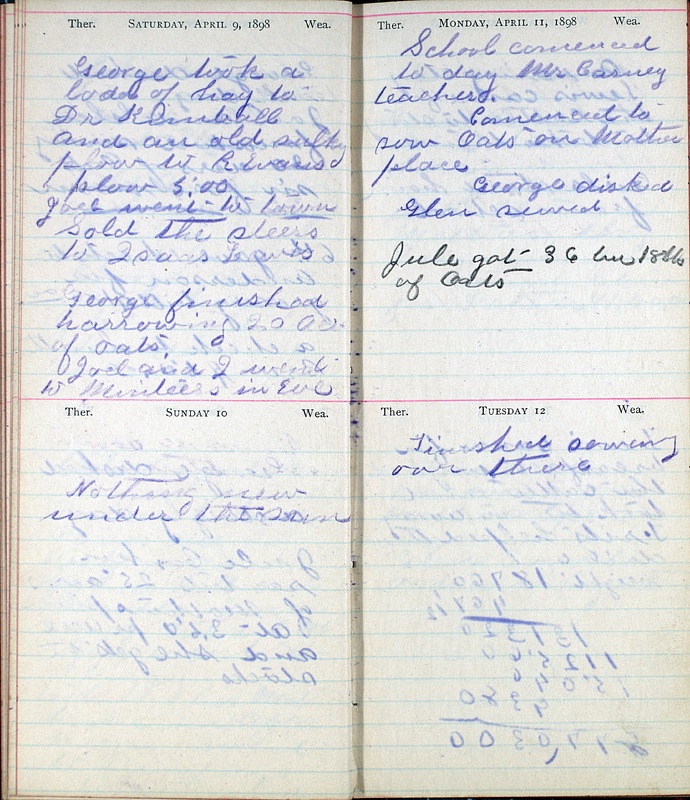 Ther. SATURDAY, APRIL 9, 1898 Wea.
George took a
load of hay to
Dr Kimball
and an old sulky
plow to R Evans
plow 5.00
Joel went to town
Sold the steers
to Isaac Lewis
George finished
harrowing 20 Ac
of oats.
Joel and I went
to Minteers in Eve
Ther. SUNDAY 10 Wea.
Nothing new
under the sun
Ther. MONDAY, APRIL 11, 1898 Wea.
School comenced
to day Mr Carney
teacher.
Comenced to
sow Oats on Mother
place
George disked
Glen sewed
Jule got 36 bu 18 lb
of Oats
Ther. TUESDAY 12 Wea.
Finished sowing
over there